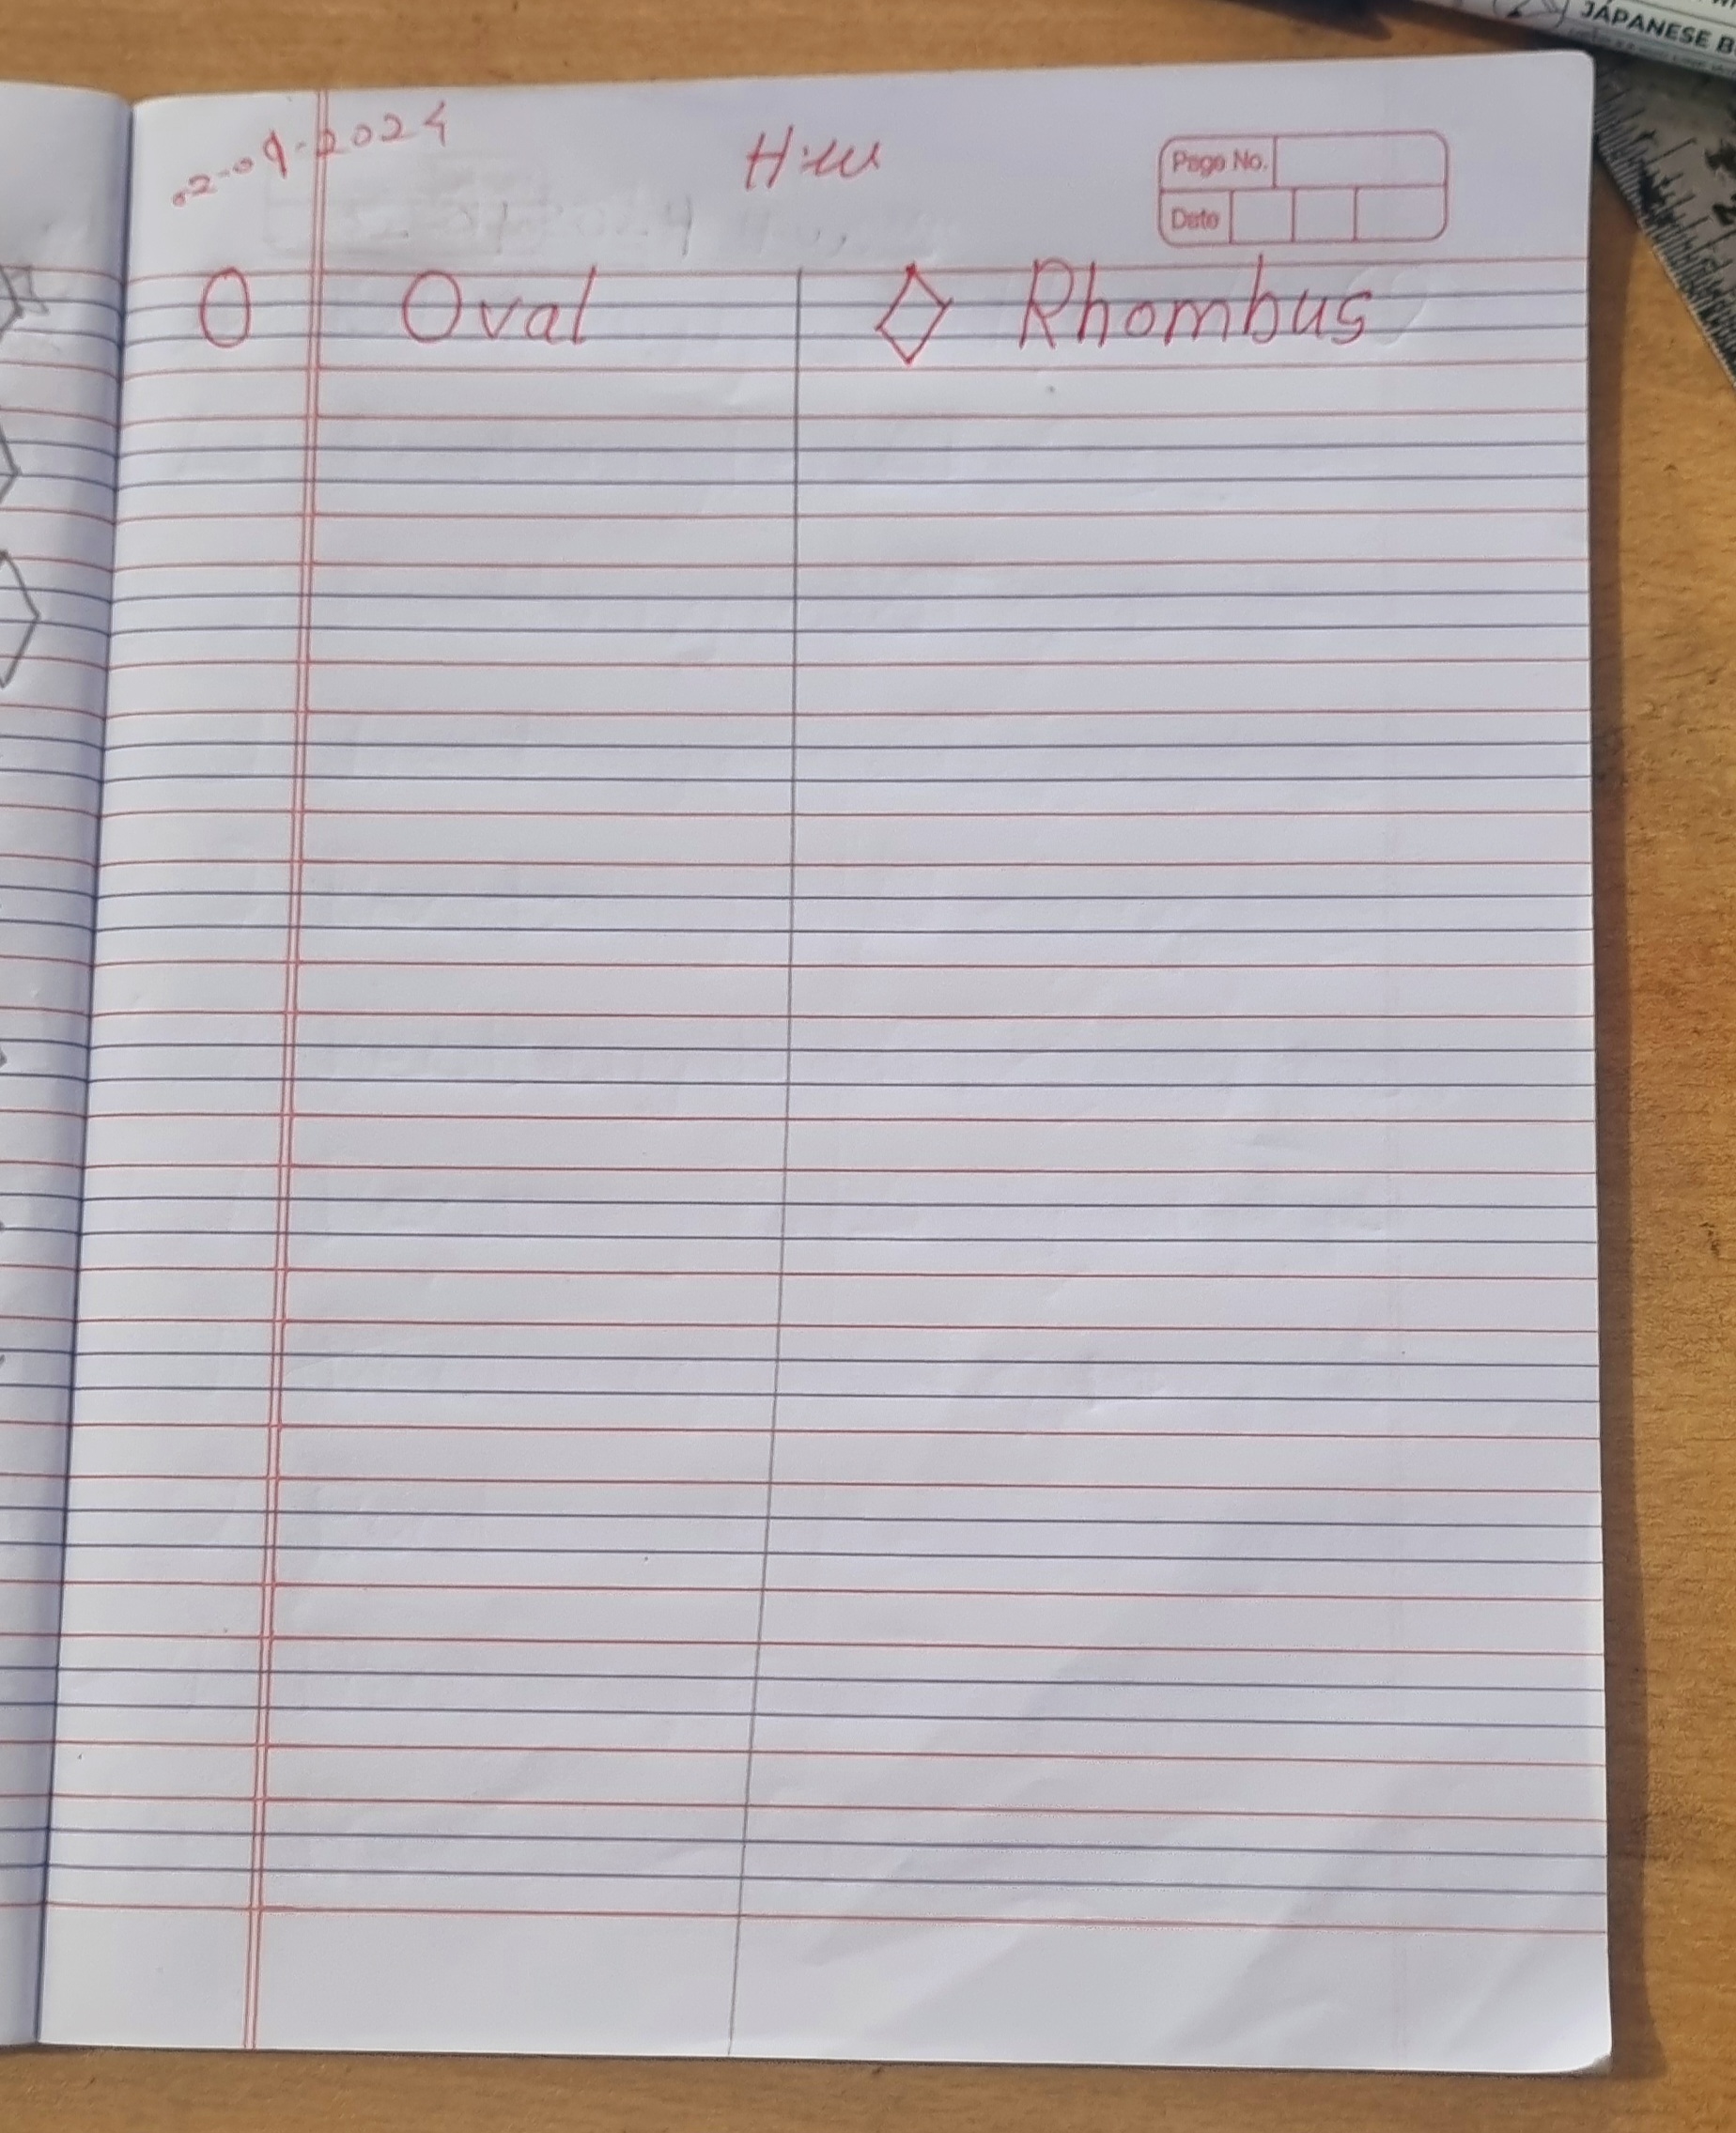 JAPANESE B
02-09-2024
H.W
Page No.
Date
Oval
Rhombus